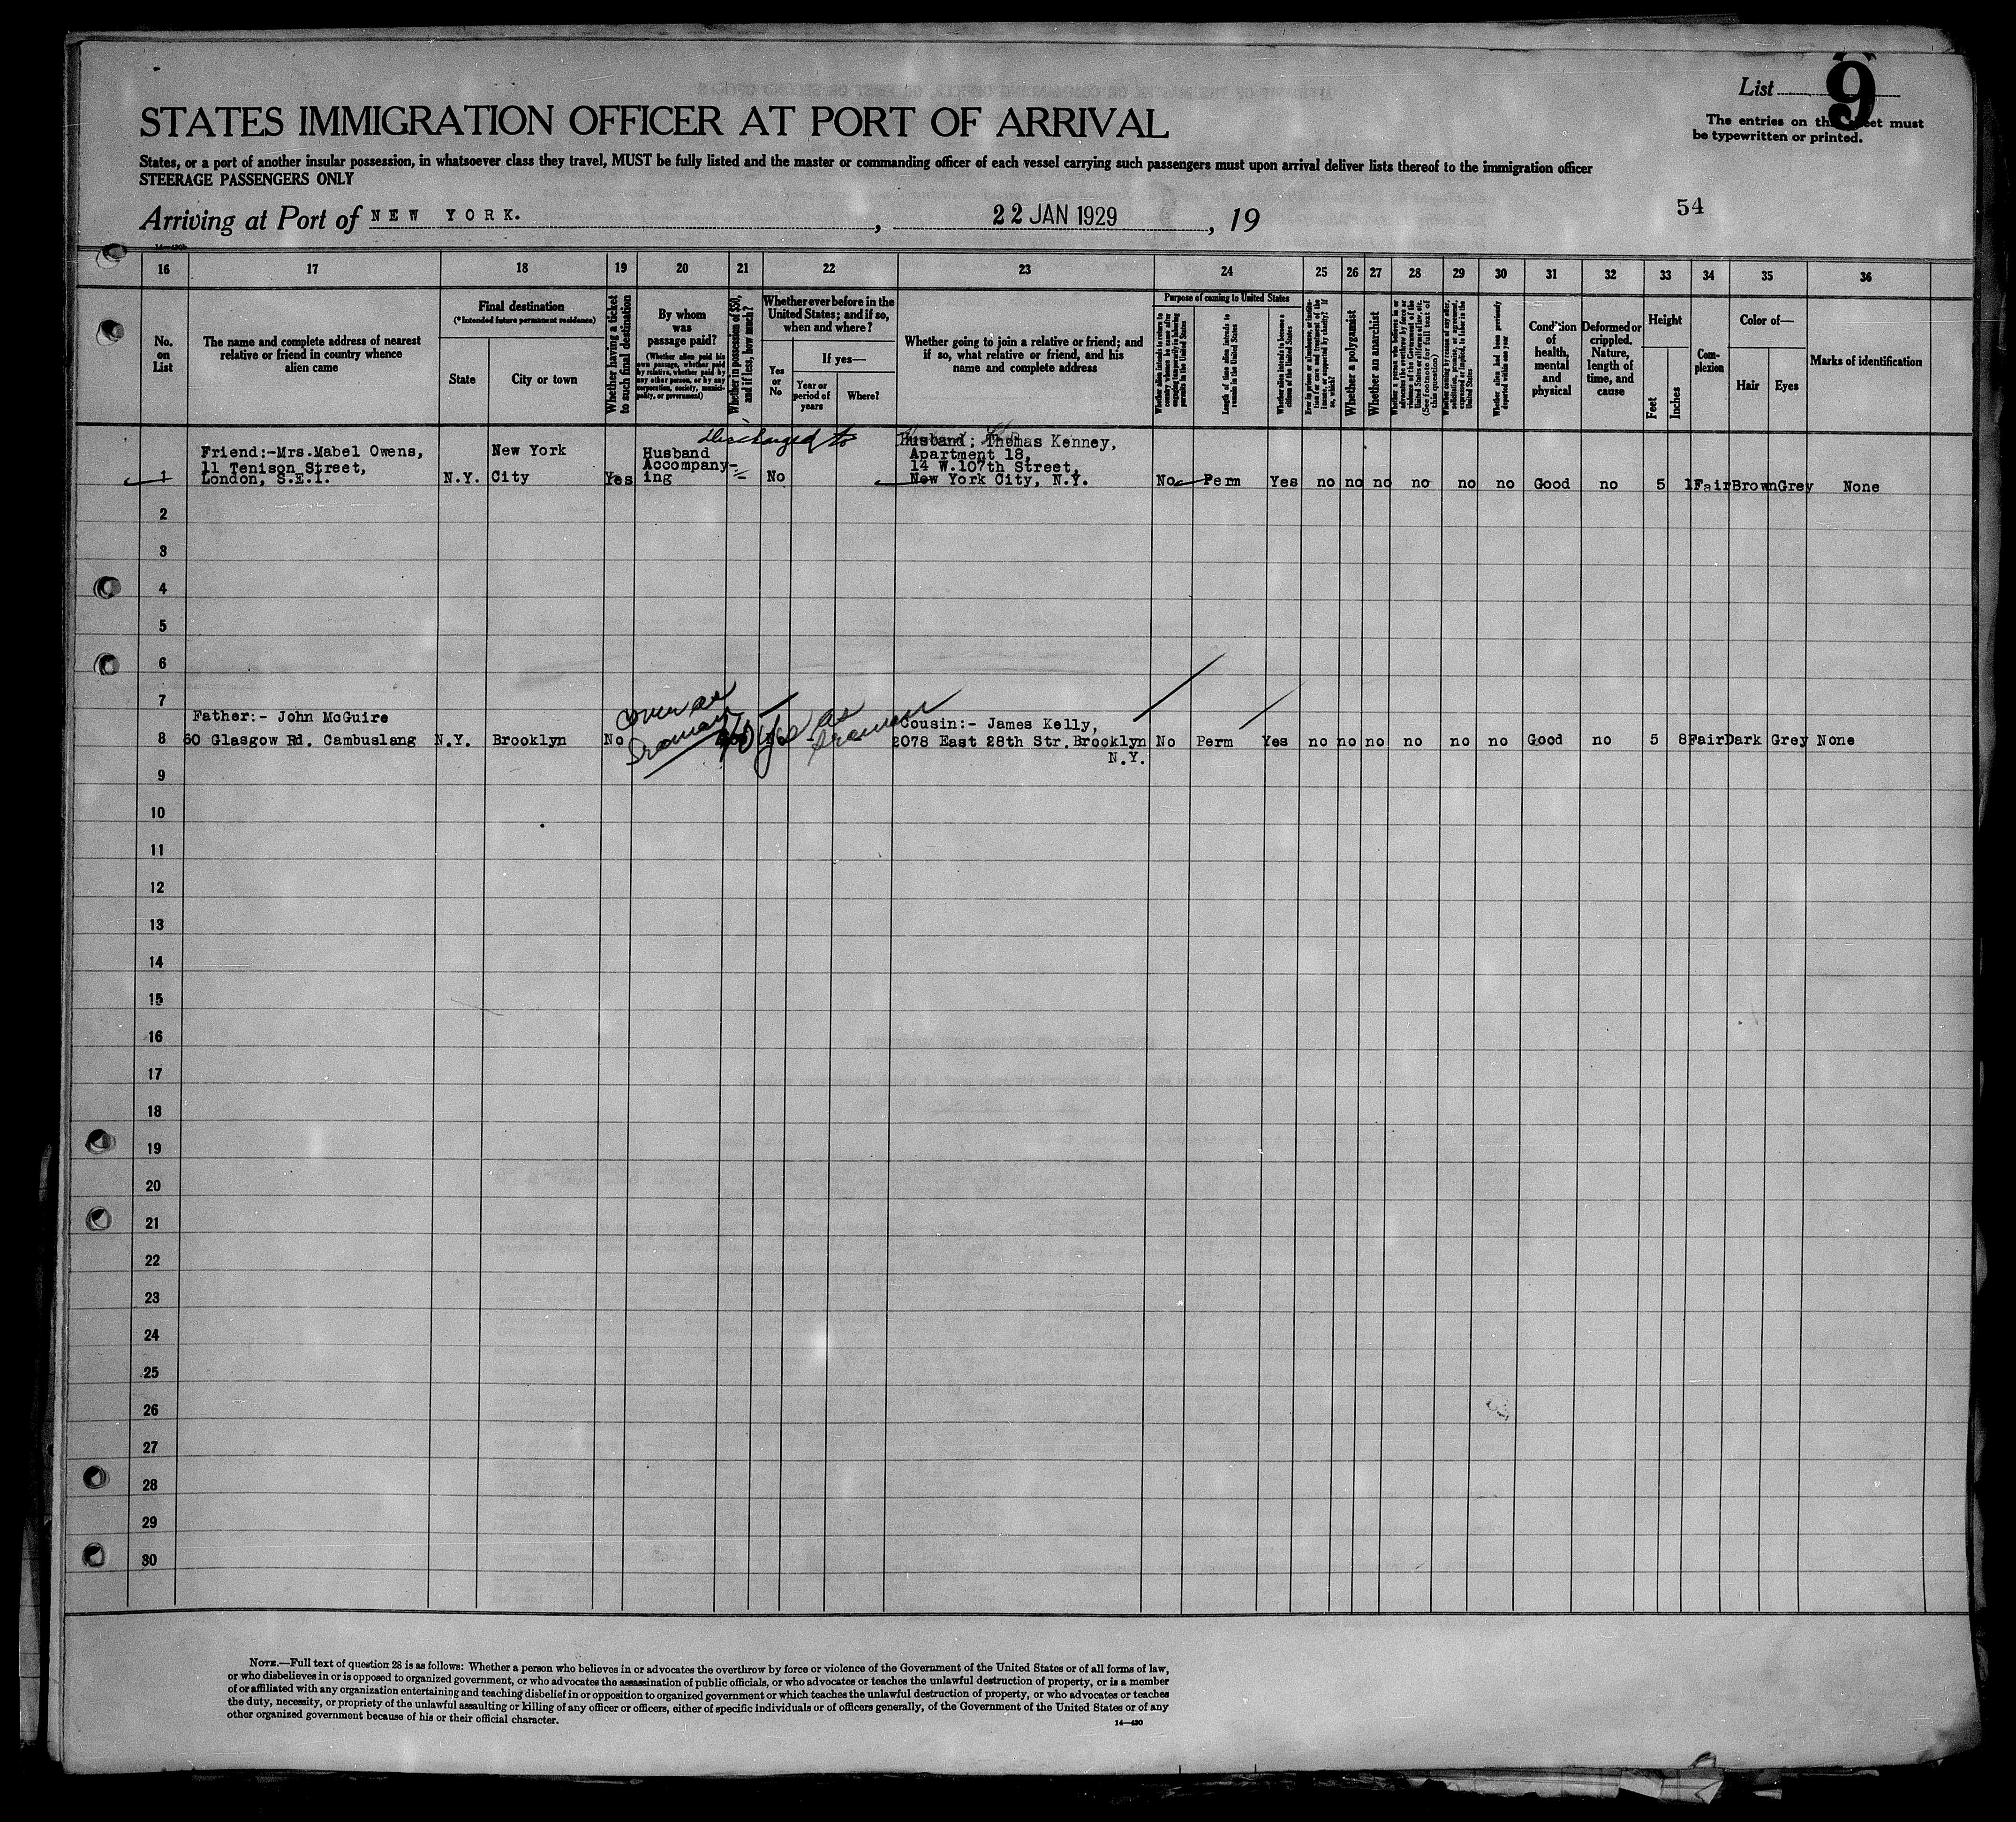 List 9
The entries on this sheet must
be typewritten or printed.
STATES IMMIGRATION OFFICER AT PORT OF ARRIVAL
States, or a port of another insular possession, in whatsoever class they travel, MUST be fully listed and the master or commanding officer of each vessel carrying such passengers must upon arrival deliver lists thereof to the immigration officer
STEERAGE PASSENGERS ONLY
54
Arriving at Port of NEW YORK. , 22 JAN 1929 , 19
14—430b
16 17 18 19 20 21 22 23 24 25 26 27 28 29 30 31 32 33 34 35 36
No. on List
The name and complete address of nearest
relative or friend in country whence
alien came
Final destination
(*Intended future permanent residence)
State
City or town
Whether having a ticket
to such final destination
By whom
was
passage paid?
(Whether alien paid his
own passage, whether paid
by relative, whether paid by
any other person, or by any
corporation, society, munici-
pality, or government)
Whether in possession of $50,
and if less, how much?
Whether ever before in the
United States; and if so,
when and where?
Yes or No
If yes—
Year or
period of
years
Where?
Whether going to join a relative or friend; and
if so, what relative or friend, and his
name and complete address
Purpose of coming to United States
Whether alien intends to return to
country whence he came after
engaging temporarily in laboring
pursuits in the United States
Length of time alien intends to
remain in the United States
Whether alien intends to become a
citizen of the United States
Ever in prison or almshouse, or institu-
tion for care and treatment of the
insane, or supported by charity? If
so, which?
Whether a polygamist
Whether an anarchist
Whether a person who believes in or
advocates the overthrow by force or
violence of the Government of the
United States or all forms of law, etc.
(See footnote for full text of
this question)
Whether coming by reason of any offer,
solicitation, promise, or agreement,
expressed or implied, to labor in the
United States
Whether alien had been previously
deported within one year
Condition
of
health,
mental
and
physical
Deformed or
crippled.
Nature,
length of
time, and
cause
Height
Feet
Inches
Com-
plexion
Color of—
Hair
Eyes
Marks of identification
Discharged to
Friend:-Mrs.Mabel Owens,
11 Tenison Street,
London, S.E.1.
New York
City
Husband
Accompany-
ing
Husband: Thomas Kenney,
Apartment 18,
14 W.107th Street,
New York City, N.Y.
1 N.Y. Yes - No No Perm Yes no no no no no no Good no 5 1 Fair Brown Grey None
2
3
4
5
6
7
Father:- John McGuire
Cousin:- James Kelly,
8 60 Glasgow Rd. Cambuslang N.Y. Brooklyn No 2078 East 28th Str. Brooklyn No Perm Yes no no no no no no Good no 5 8 Fair Dark Grey None
N.Y.
9
10
11
12
13
14
15
16
17
18
19
20
21
22
23
24
25
26
27
28
29
30
NOTE.—Full text of question 28 is as follows: Whether a person who believes in or advocates the overthrow by force or violence of the Government of the United States or of all forms of law,
or who disbelieves in or is opposed to organized government, or who advocates the assassination of public officials, or who advocates or teaches the unlawful destruction of property, or is a member
of or affiliated with any organization entertaining and teaching disbelief in or opposition to organized government or which teaches the unlawful destruction of property, or who advocates or teaches
the duty, necessity, or propriety of the unlawful assaulting or killing of any officer or officers, either of specific individuals or of officers generally, of the Government of the United States or of any
other organized government because of his or their official character.
14—430